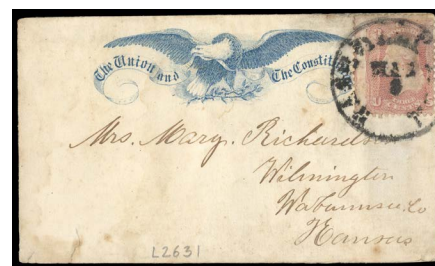 The Union and The Constitu
Mrs. Mary. Richards
Wilmington
Wabaunsee. Co
Kansas
L2631